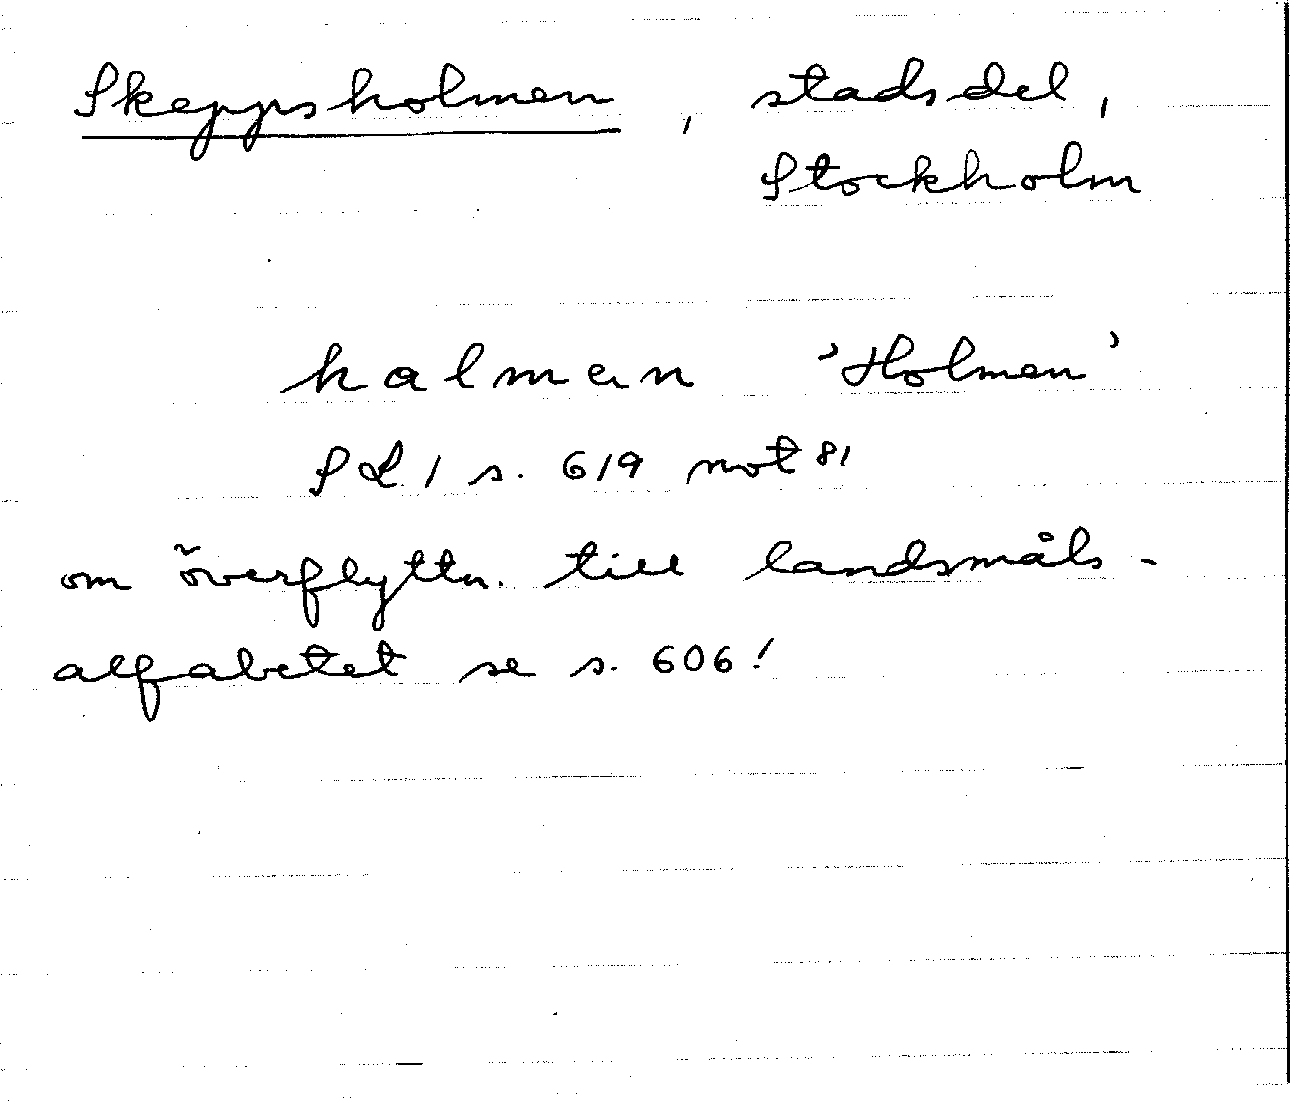 Skeppsholmen, stadsdel,
Stockholm
halmen 'Holmen'
SL 1 s. 619 not 81
om överflyttn. till landsmåls-
alfabetet se s. 606!